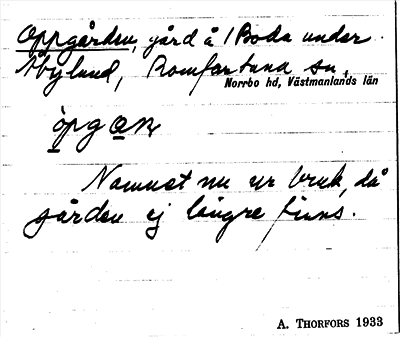 Oppgården, gård å 1 Boda under
Åbylund, Romfartuna sn,
Norrbo hd, Västmanlands län
öpgɑɳ
Namnet nu ur bruk, då
gården ej längre finns.
A. THORFORS 1933